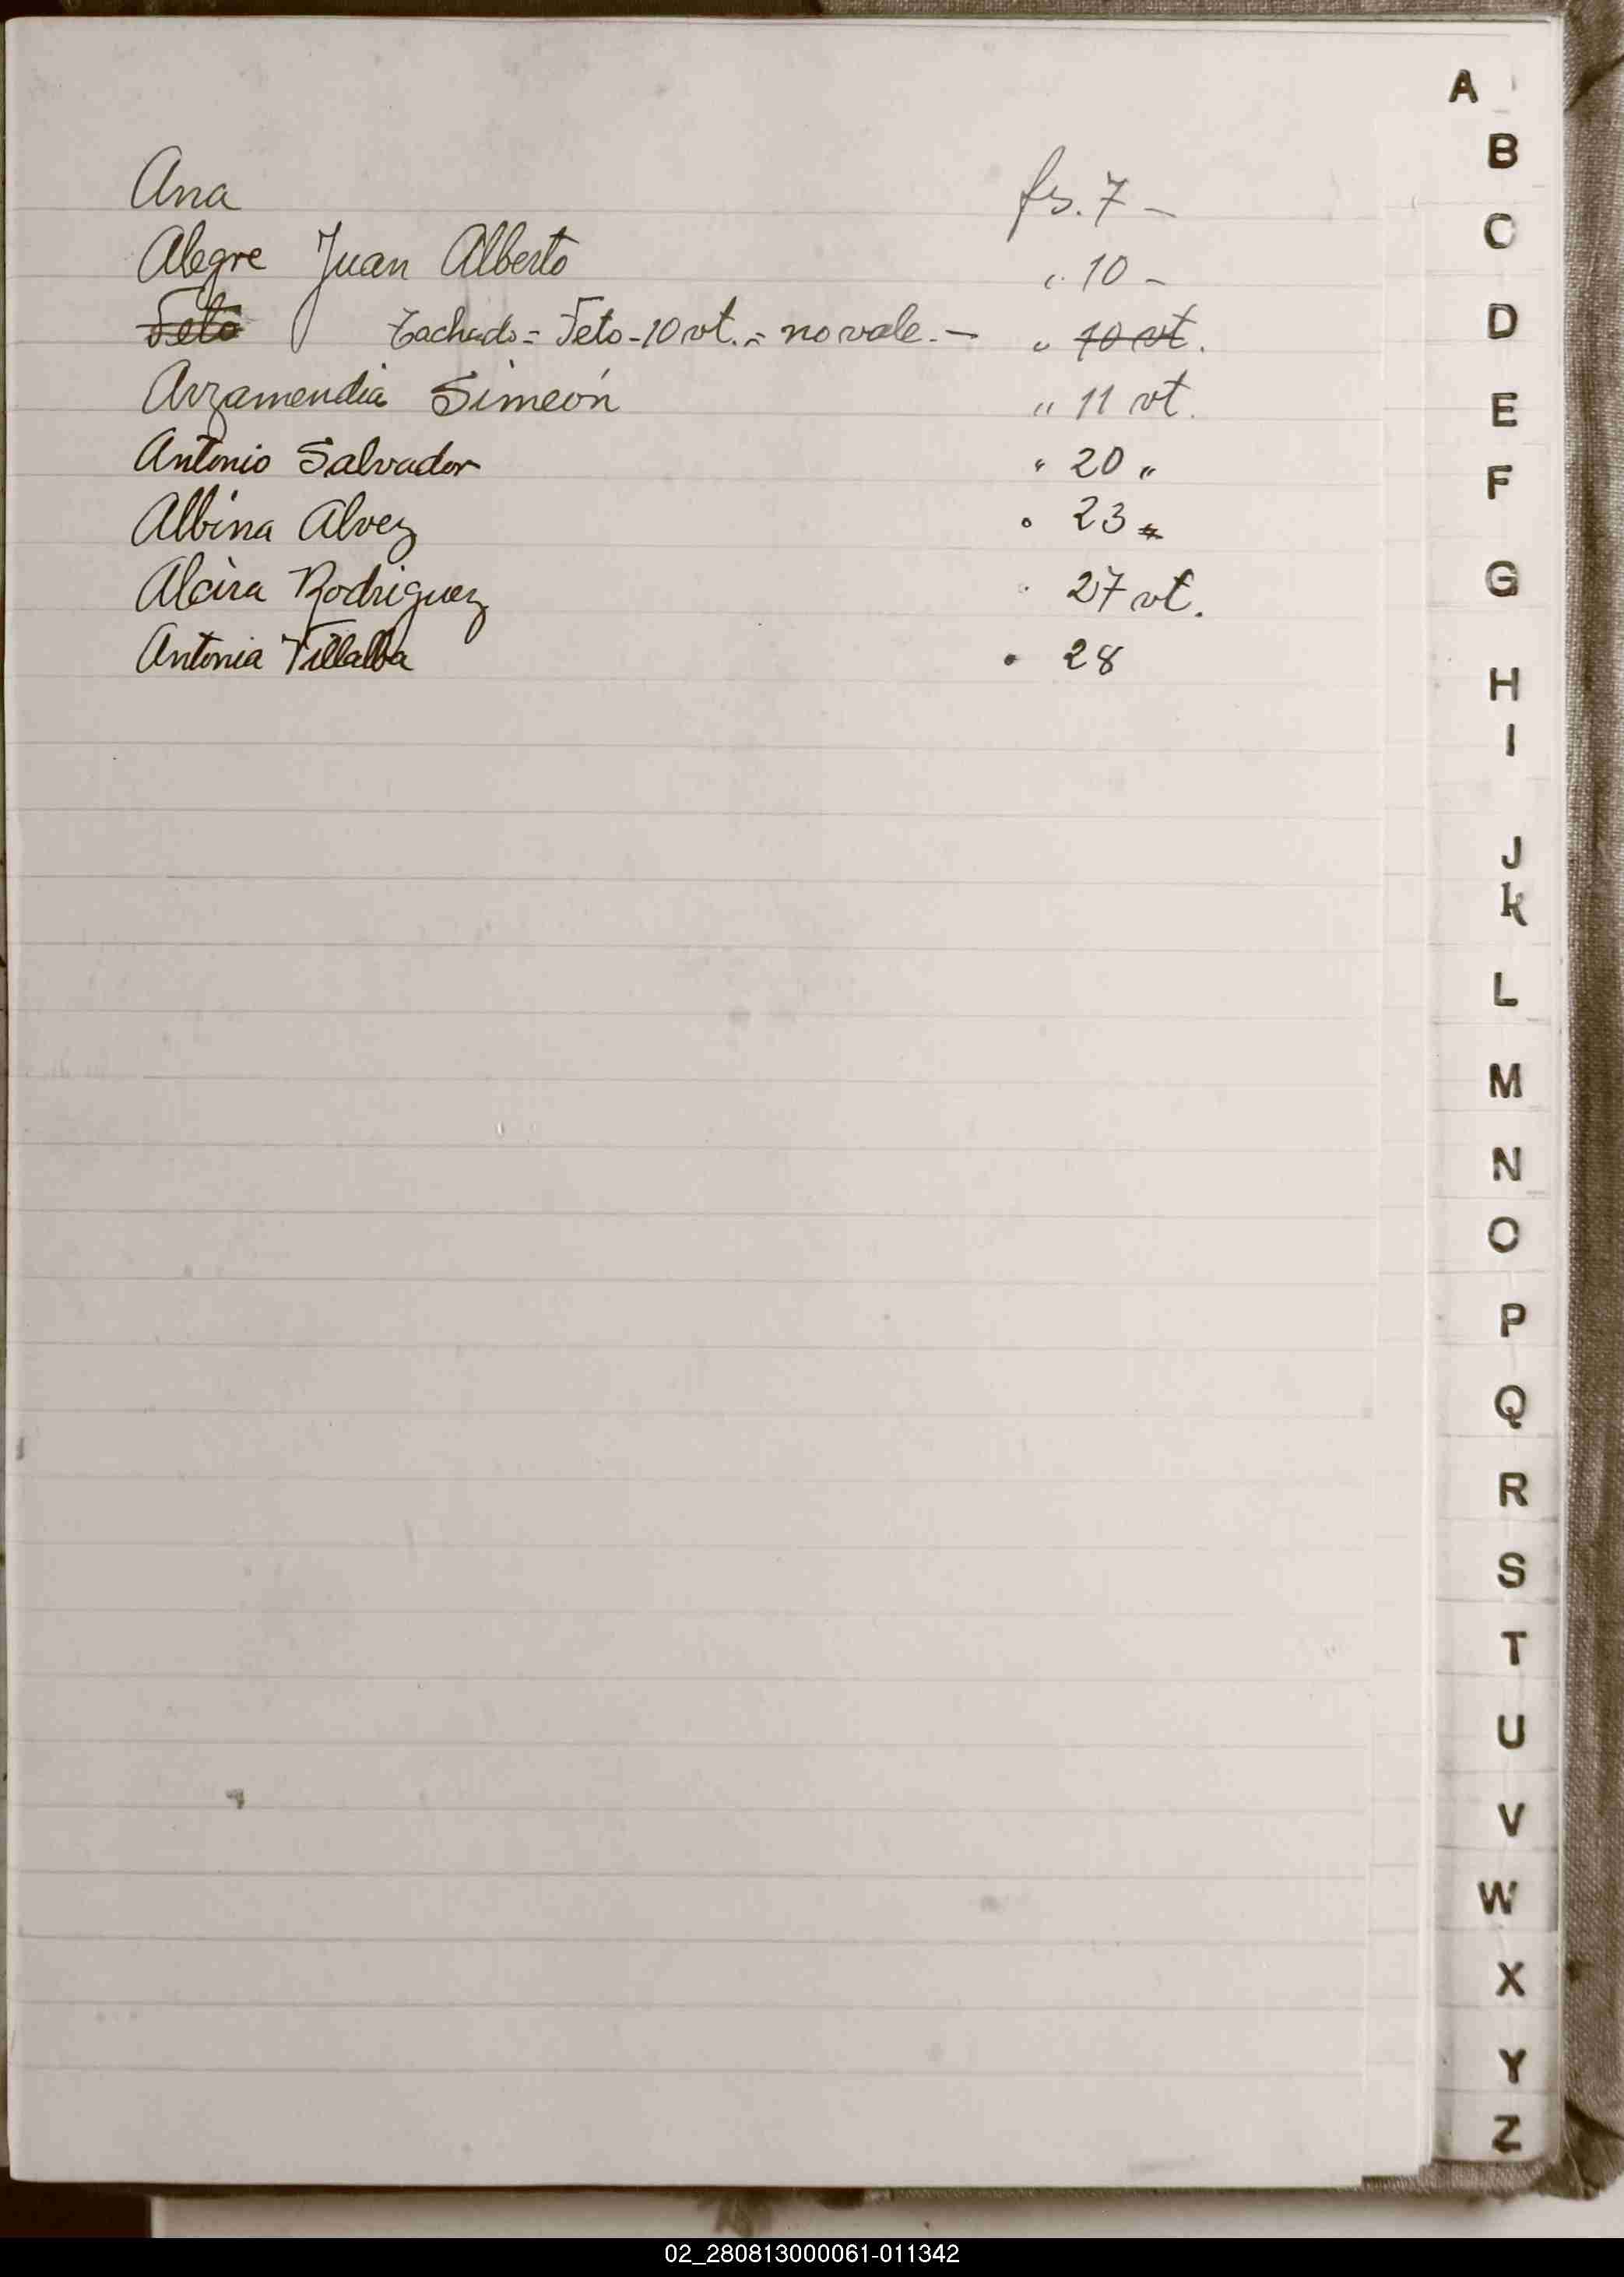 Ana fs. 7 -
Alegre Juan Alberto " 10 -
Feto Tachado = Feto - 10 vt. = no vale. - " 10 vt.
Arzamendia Simeón " 11 vt.
Antonio Salvador " 20 "
Albina Alvez " 23
Alcira Rodriguez " 27 vt.
Antonia Villalba " 28
A
B
C
D
E
F
G
H
I
J
k
L
M
N
O
P
Q
R
S
T
U
V
W
X
Y
Z
02_280813000061-011342